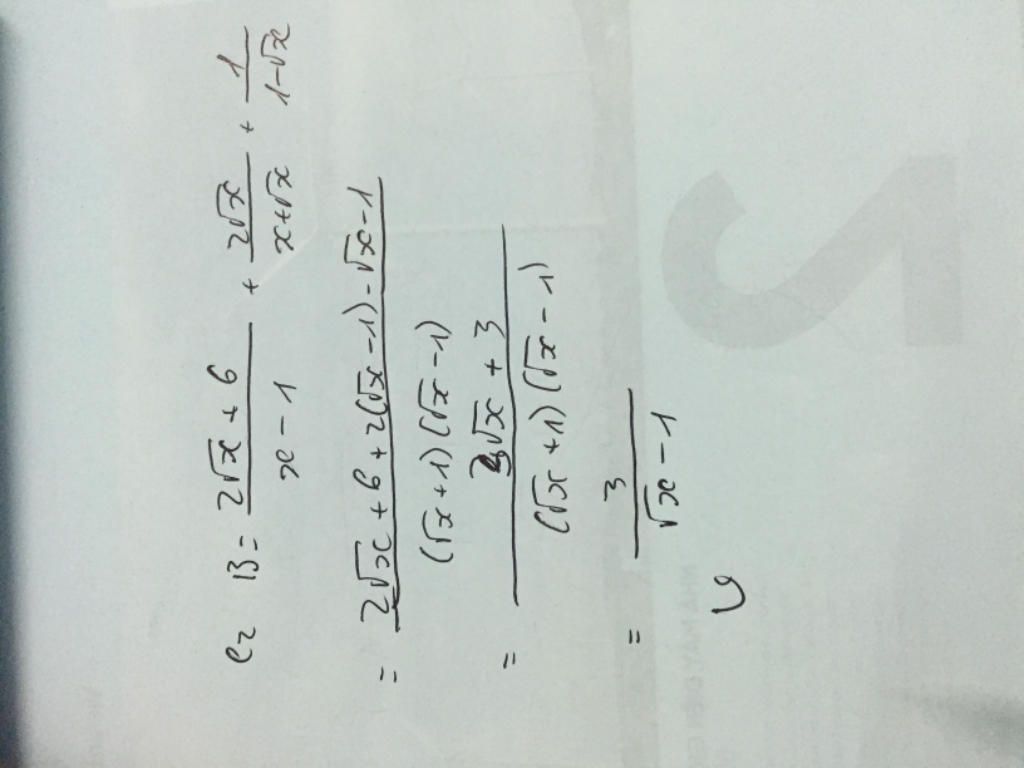 B = \frac{2\sqrt{x} + 6}{x - 1} + \frac{2\sqrt{x}}{x + \sqrt{x}} + \frac{1}{1 - \sqrt{x}}
= \frac{2\sqrt{x} + 6 + 2(\sqrt{x} - 1) - \sqrt{x} - 1}{(\sqrt{x} + 1)(\sqrt{x} - 1)}
= \frac{3\sqrt{x} + 3}{(\sqrt{x} + 1)(\sqrt{x} - 1)}
= \frac{3}{\sqrt{x} - 1}